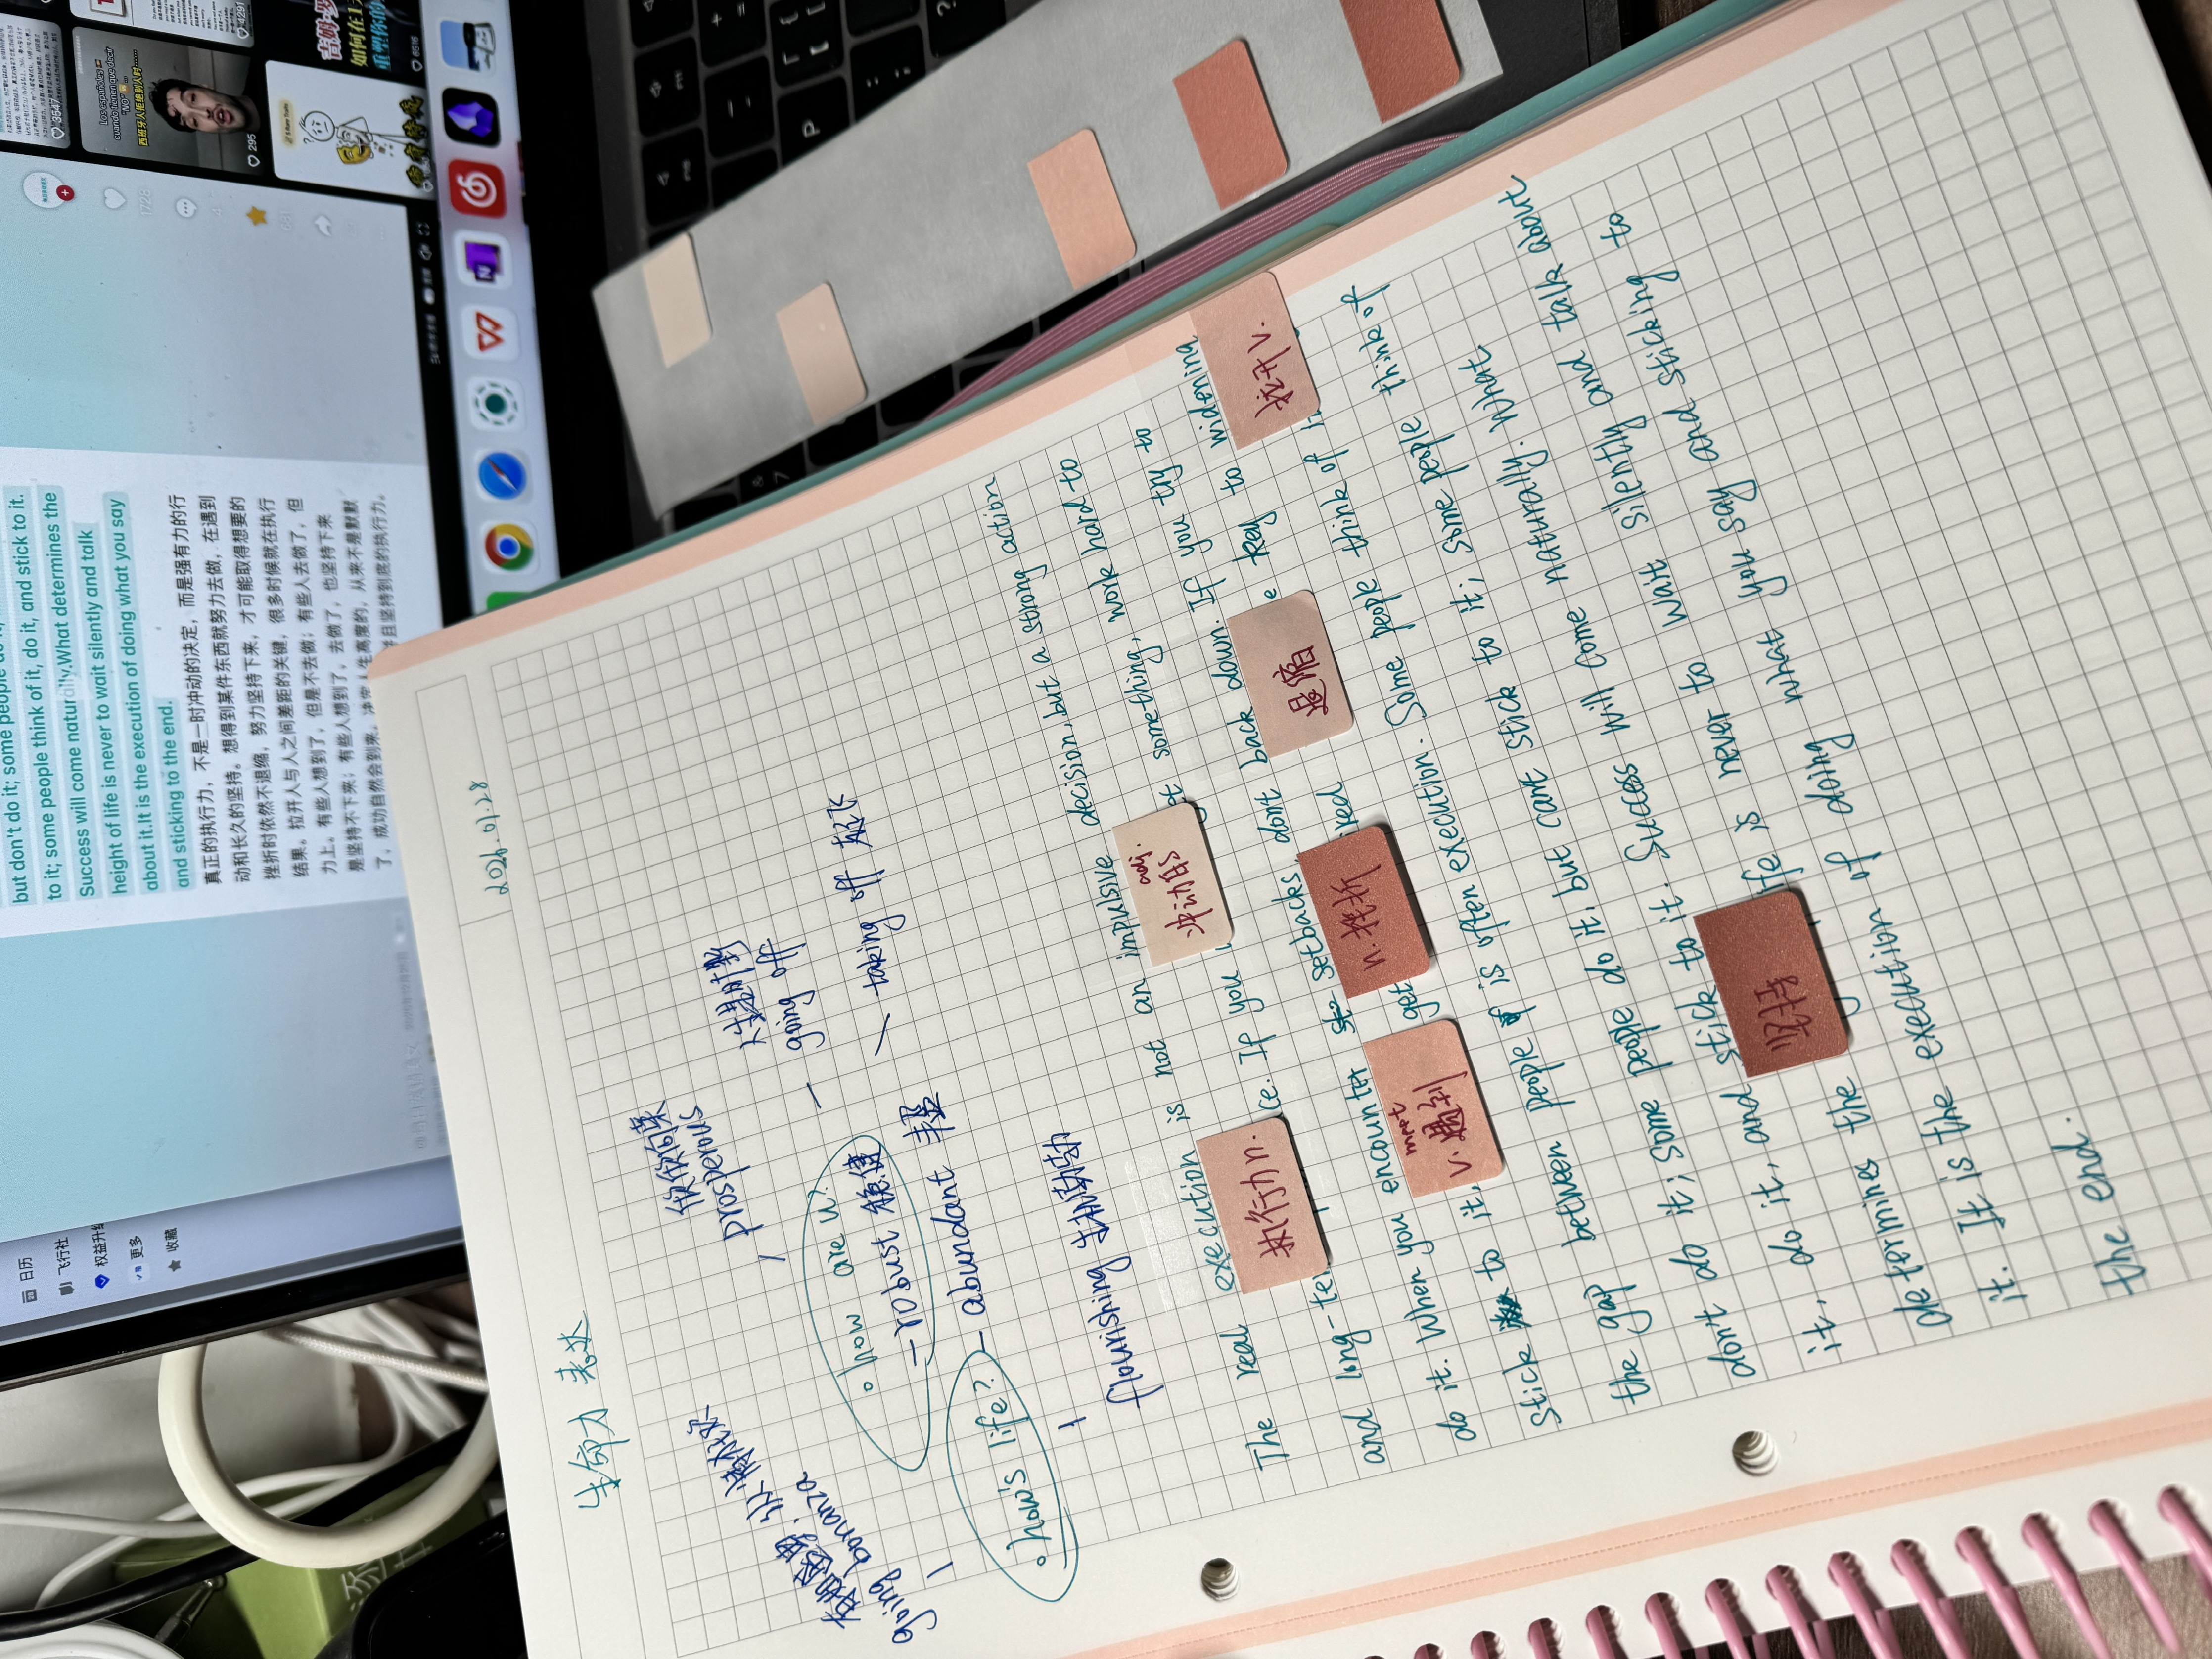 生命力 表达
2026.01.28
欣欣向荣
prosperous
going bonanza
going off
taking off 起飞
how are u?
- robust 稳健
how's life?
- abundant 丰盛
flourishing 蓬勃
The real execution is not an impulsive decision, but a strong action
and long-te ce. If you something, work hard to
do it. When you encounter setbacks dont back down. If you try to
stick to it. get e key to widening
the gap between people is often execution. Some people think of
dont do it; Some people do it, but cant stick to it; some people think of
it, do it, and stick to it. Success will come naturally. What
determines the life is never to wait silently and talk about
it. It is the execution of doing what you say and sticking to
the end.
执行力 n.
冲动的 adj.
拉开 v.
退缩
n. 挫折
meet
v. 遇到
坚持
but don't do it; some people do
to it; some people think of it, do it, and stick to it.
Success will come naturally.What determines the
height of life is never to wait silently and talk
about it.It is the execution of doing what you say
and sticking to the end.
真正的执行力，不是一时冲动的决定，而是强有力的行
动和长久的坚持。想得到某件东西就努力去做，在遇到
挫折时依然不退缩，努力坚持下来，才可能取得想要的
结果。拉开人与人之间差距的关键，很多时候就在执行
力上。有些人想到了，但是不去做；有些人去做了，但
是坚持不下来；有些人想到了，去做了，也坚持下来
了，成功自然会到来。
且坚持到底的执行力。
日历
飞行社
权益升级
更多
收藏
Los españoles
cuando tienen que decir
"NO"
西班牙人拒绝别人时……
295
3547
6516
如何在1
重塑你的
P